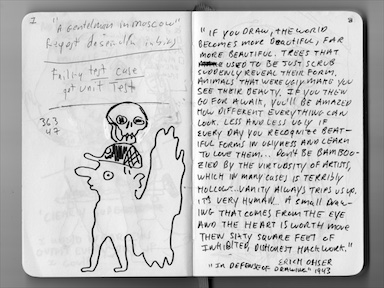 1
"A gentleman in moscow"
Regent
Failing test case
get unit test
363
47
"IF YOU DRAW, THE WORLD
BECOMES MORE BEAUTIFUL, FAR
MORE BEAUTIFUL. TREES THAT
USED TO BE JUST SCRUB
SUDDENLY REVEAL THEIR FORM.
ANIMALS THAT WERE UGLY MAKE YOU
SEE THEIR BEAUTY. IF YOU THEN
GO FOR A WALK, YOU'LL BE AMAZED
HOW DIFFERENT EVERYTHING CAN
LOOK. LESS AND LESS UGLY IF
EVERY DAY YOU RECOGNISE BEAT-
IFUL FORMS IN UGLYNESS AND LEARN
TO LOVE THEM... DON'T BE BAMBOO-
ZLED BY THE VIRTUOSITY OF ARTISTS,
WHICH IN MANY CASES IS TERRIBLY
HOLLOW. VANITY ALWAYS TRIPS US UP.
IT'S VERY HUMAN. A SMALL DRAW-
ING THAT COMES FROM THE EYE
AND THE HEART IS WORTH MORE
THEN SIXTY SQUARE FEET OF
INHIBITED, DISHONEST HACKWORK."
ERICH OHSER
"IN DEFENSE OF DRAWING" 1943